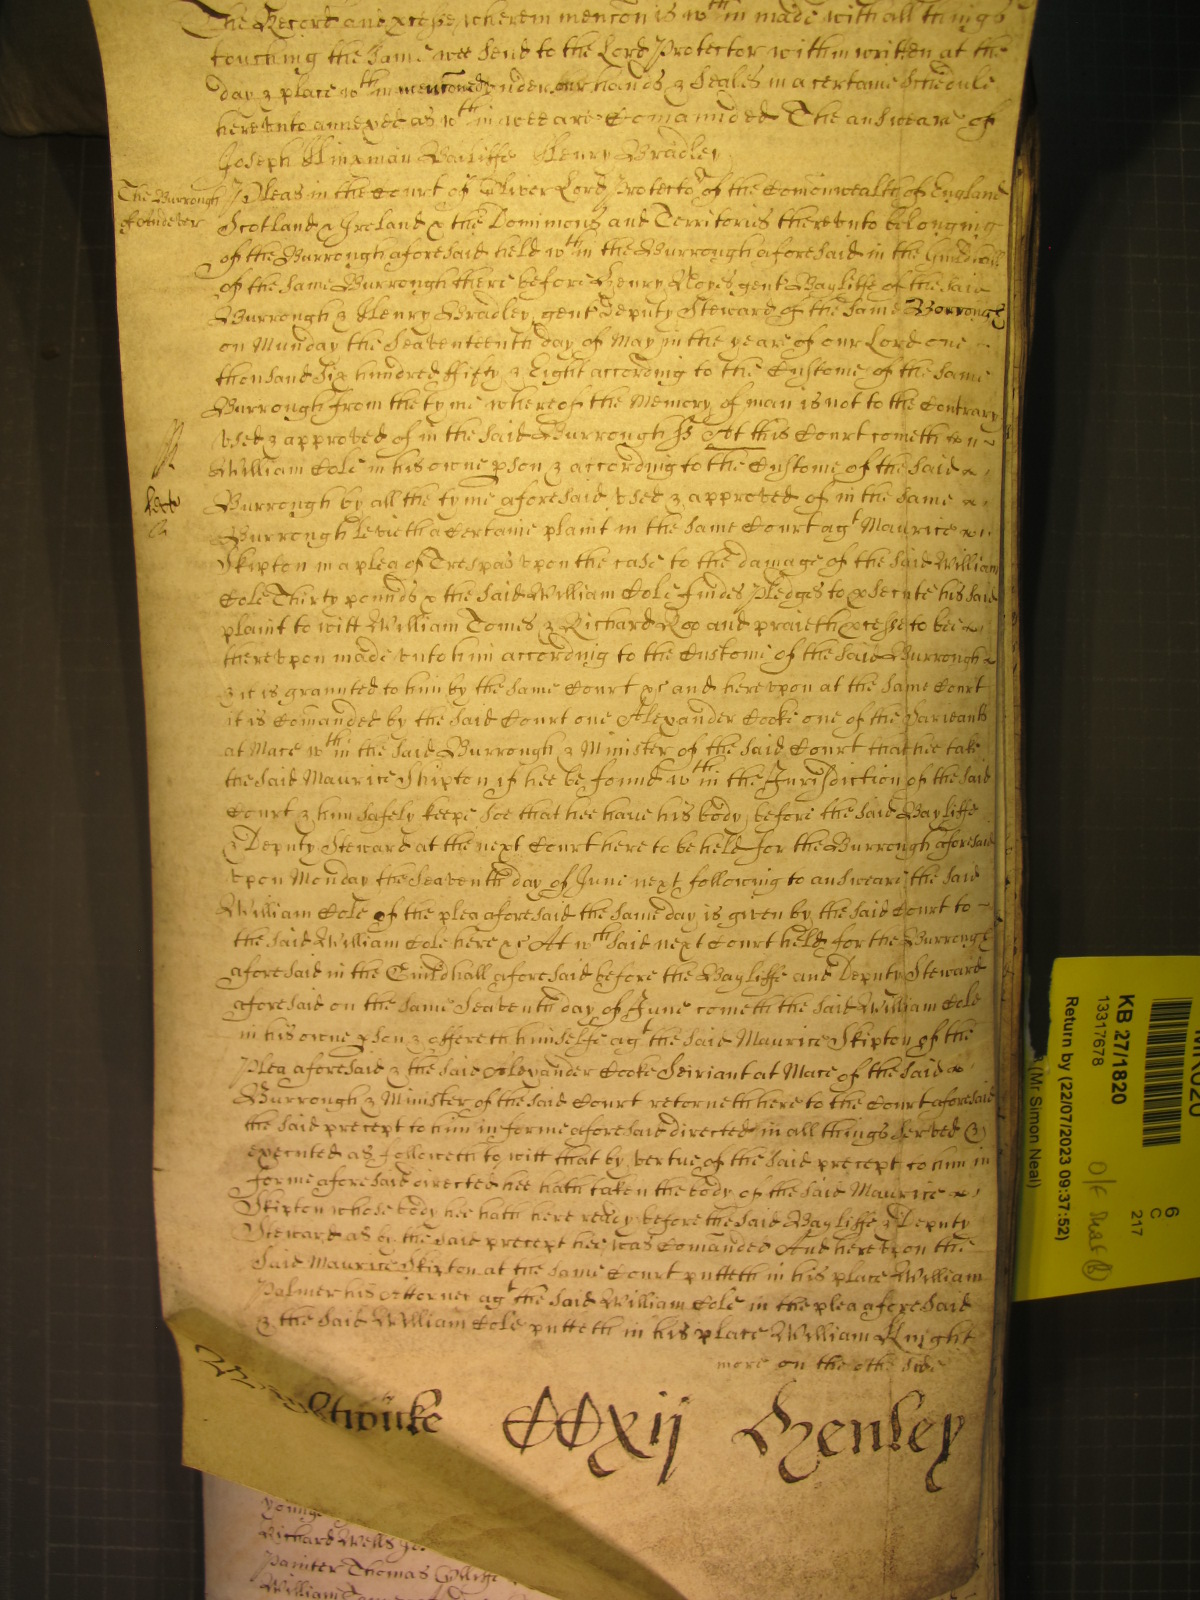 The Record and processe wherein mencon is wth in made with all things
touching the same wee send to the Lord Protector within written at the
day & place wth in mencioned under our hands & Seales in a certaine Scedule
hereunto annexed as wth in wee are Comaunded The answeare of
Joseph Hinxman Bailiffe Henry Bradley
The Burrough of Andever
Pleas in the Court of Oliver Lord Protector of the Comonwealth of England
Scotland & Ireland & the Dominions and Territories thereunto belonging
of the Burrough aforesaid held wth in the Burrough aforesaid in the Guildhall
of the same Burrough there before Henry Noyes gent Bayliffe of the said
Burrough & Henry Bradley gent Deputy Steward of the same Borrough
on Munday the Seaventeenth day of May in the yeare of our Lord one
thousand Six hundred ffifty & Eight according to the Custome of the same
Burrough from the tyme whereof the Memory of man is not to the Contrary
used & approved of in the said Burrough ss At this Court cometh
William Cole in his owne pson & according to the Custome of the said
Burrough by all the tyme aforesaid used & approved of in the same
Burrough levieth a Certaine plaint in the same Court agt Maurice
Skipton in a plea of Trespas upon the case to the damage of the said William
Cole Thirty pounds & the said William Cole findes Pledges to psecute his said
plaint to witt William Tomes & Richard Roo and praieth pcesse to bee
thereupon made unto him according to the Custome of the said Burrough
& it is graunted to him by the same Court &c and hereupon at the same Court
it is Comanded by the said Court one Alexander Cooke one of the Sarieants
at Mace wth in the said Burrough & Minister of the said Court that hee take
the said Maurice Skipton if hee be found wth in the Jurisdiction of the said
Court & him safely keepe soe that hee have his body before the said Bayliffe
& Deputy Steward at the next Court here to be held for the Burrough aforesaid
upon Monday the Seaventh day of June next following to answeare the said
William Cole of the plea aforesaid the same day is given by the said Court to
the said William Cole here &c At wch said next Court held for the Burrough
aforesaid in the Guildhall aforesaid before the Bayliffe and Deputy Steward
aforesaid on the same Seaventh day of June cometh the said William Cole
in his owne pson & offereth himselfe agt the said Maurice Skipton of the
Plea aforesaid & the said Alexander Cooke Seiriant at Mace of the said
Burrough & Minister of the said Court retorneth here to the Court aforesaid
the said precept to him in forme aforesaid directed in all things served &
executed as followeth to witt that by vertue of the said precept to him in
forme aforesaid directed hee hath taken the body of the said Maurice
Skipton whose body hee hath here ready before the said Bayliffe & Deputy
Steward as by the said precept hee was Comanded And hereupon the
said Maurice Skipton at the same Court putteth in his place William
Palmer his Attorney agt the said William Cole in the plea aforesaid
& the said William Cole putteth in his place William Knight
more on the other side
CCxij Henley
Richard Wells
Painter Thomas
William
KB 27/1820
13317678
Return by (22/07/2023 09:37:52)
(Mr Simon Neal)
6
C
217